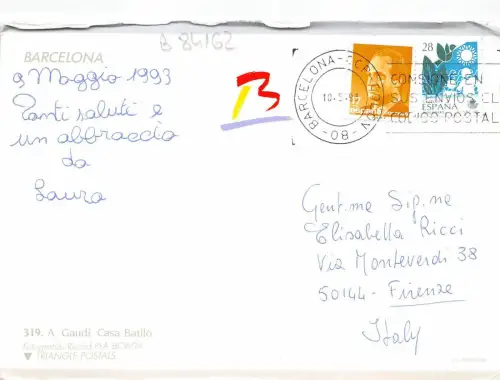 B 84162
BARCELONA
9 Maggio 1993
Tanti saluti e
un abbraccio
da
Laura
319. A Gaudí Casa Batlló
TRIANGLE POSTALS
B
BARCELONA
10-5-9
28
ESPAÑA
CONSIGNE EN
SUS ENVIOS EL
CODIGO POSTAL
Gent.me Sig.ne
Elisabetta Ricci
Via Monteverdi 38
50144 - Firenze
Italy